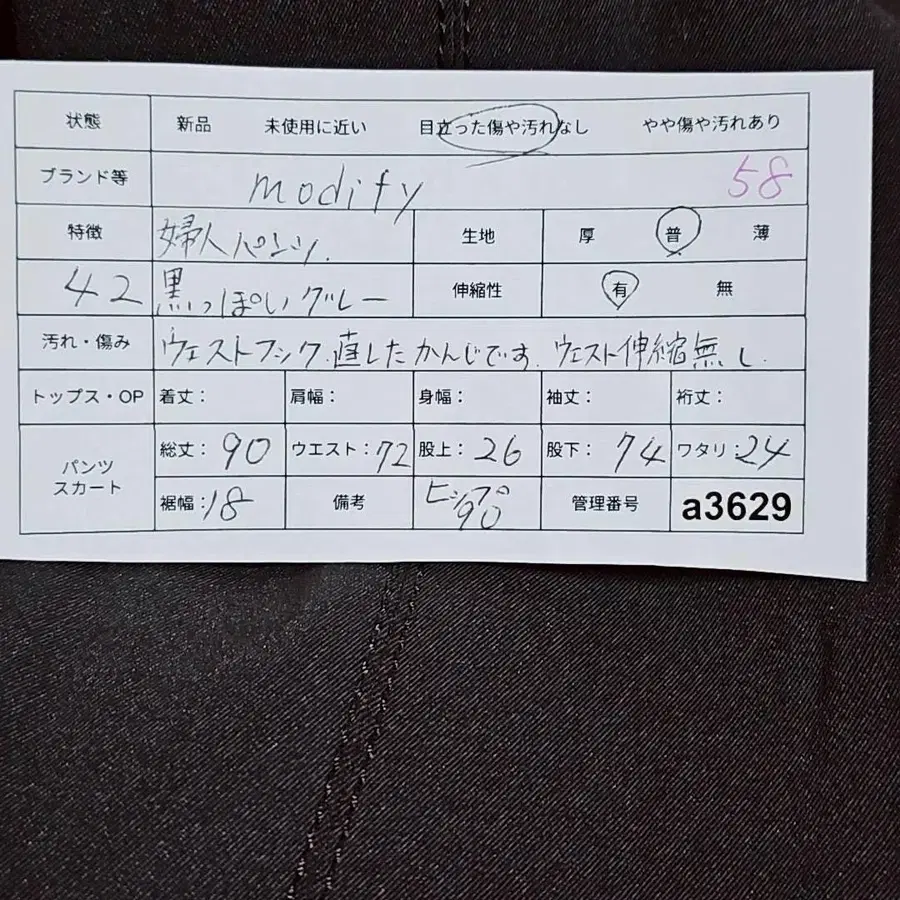 状態 新品 未使用に近い 目立った傷や汚れなし やや傷や汚れあり
ブランド等 modify 58
特徴 婦人パンツ. 生地 厚 普 薄
42 黒っぽいグレー 伸縮性 有 無
汚れ・傷み ウェストフック.直したかんじです.ウェスト伸縮無し.
トップス・OP 着丈: 肩幅: 身幅: 袖丈: 裄丈:
パンツ スカート 総丈:90 ウエスト:72 股上:26 股下:74 ワタリ:24
裾幅:18 備考 ヒップ90 管理番号 a3629